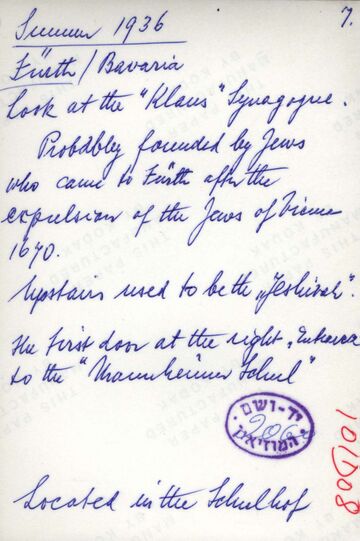 7.
Summer 1936
Fürth/Bavaria
Look at the "Klaus" Synagogue.
Probably founded by Jews
who came to Fürth after the
expulsion of the Jews of Vienna
1670.
Upstairs used to be the „Jeshivah".
The first door at the right „Entrance
to the "Mannheimer Schul"
יד-ושם
המוזיאון
Located in the Schulhof